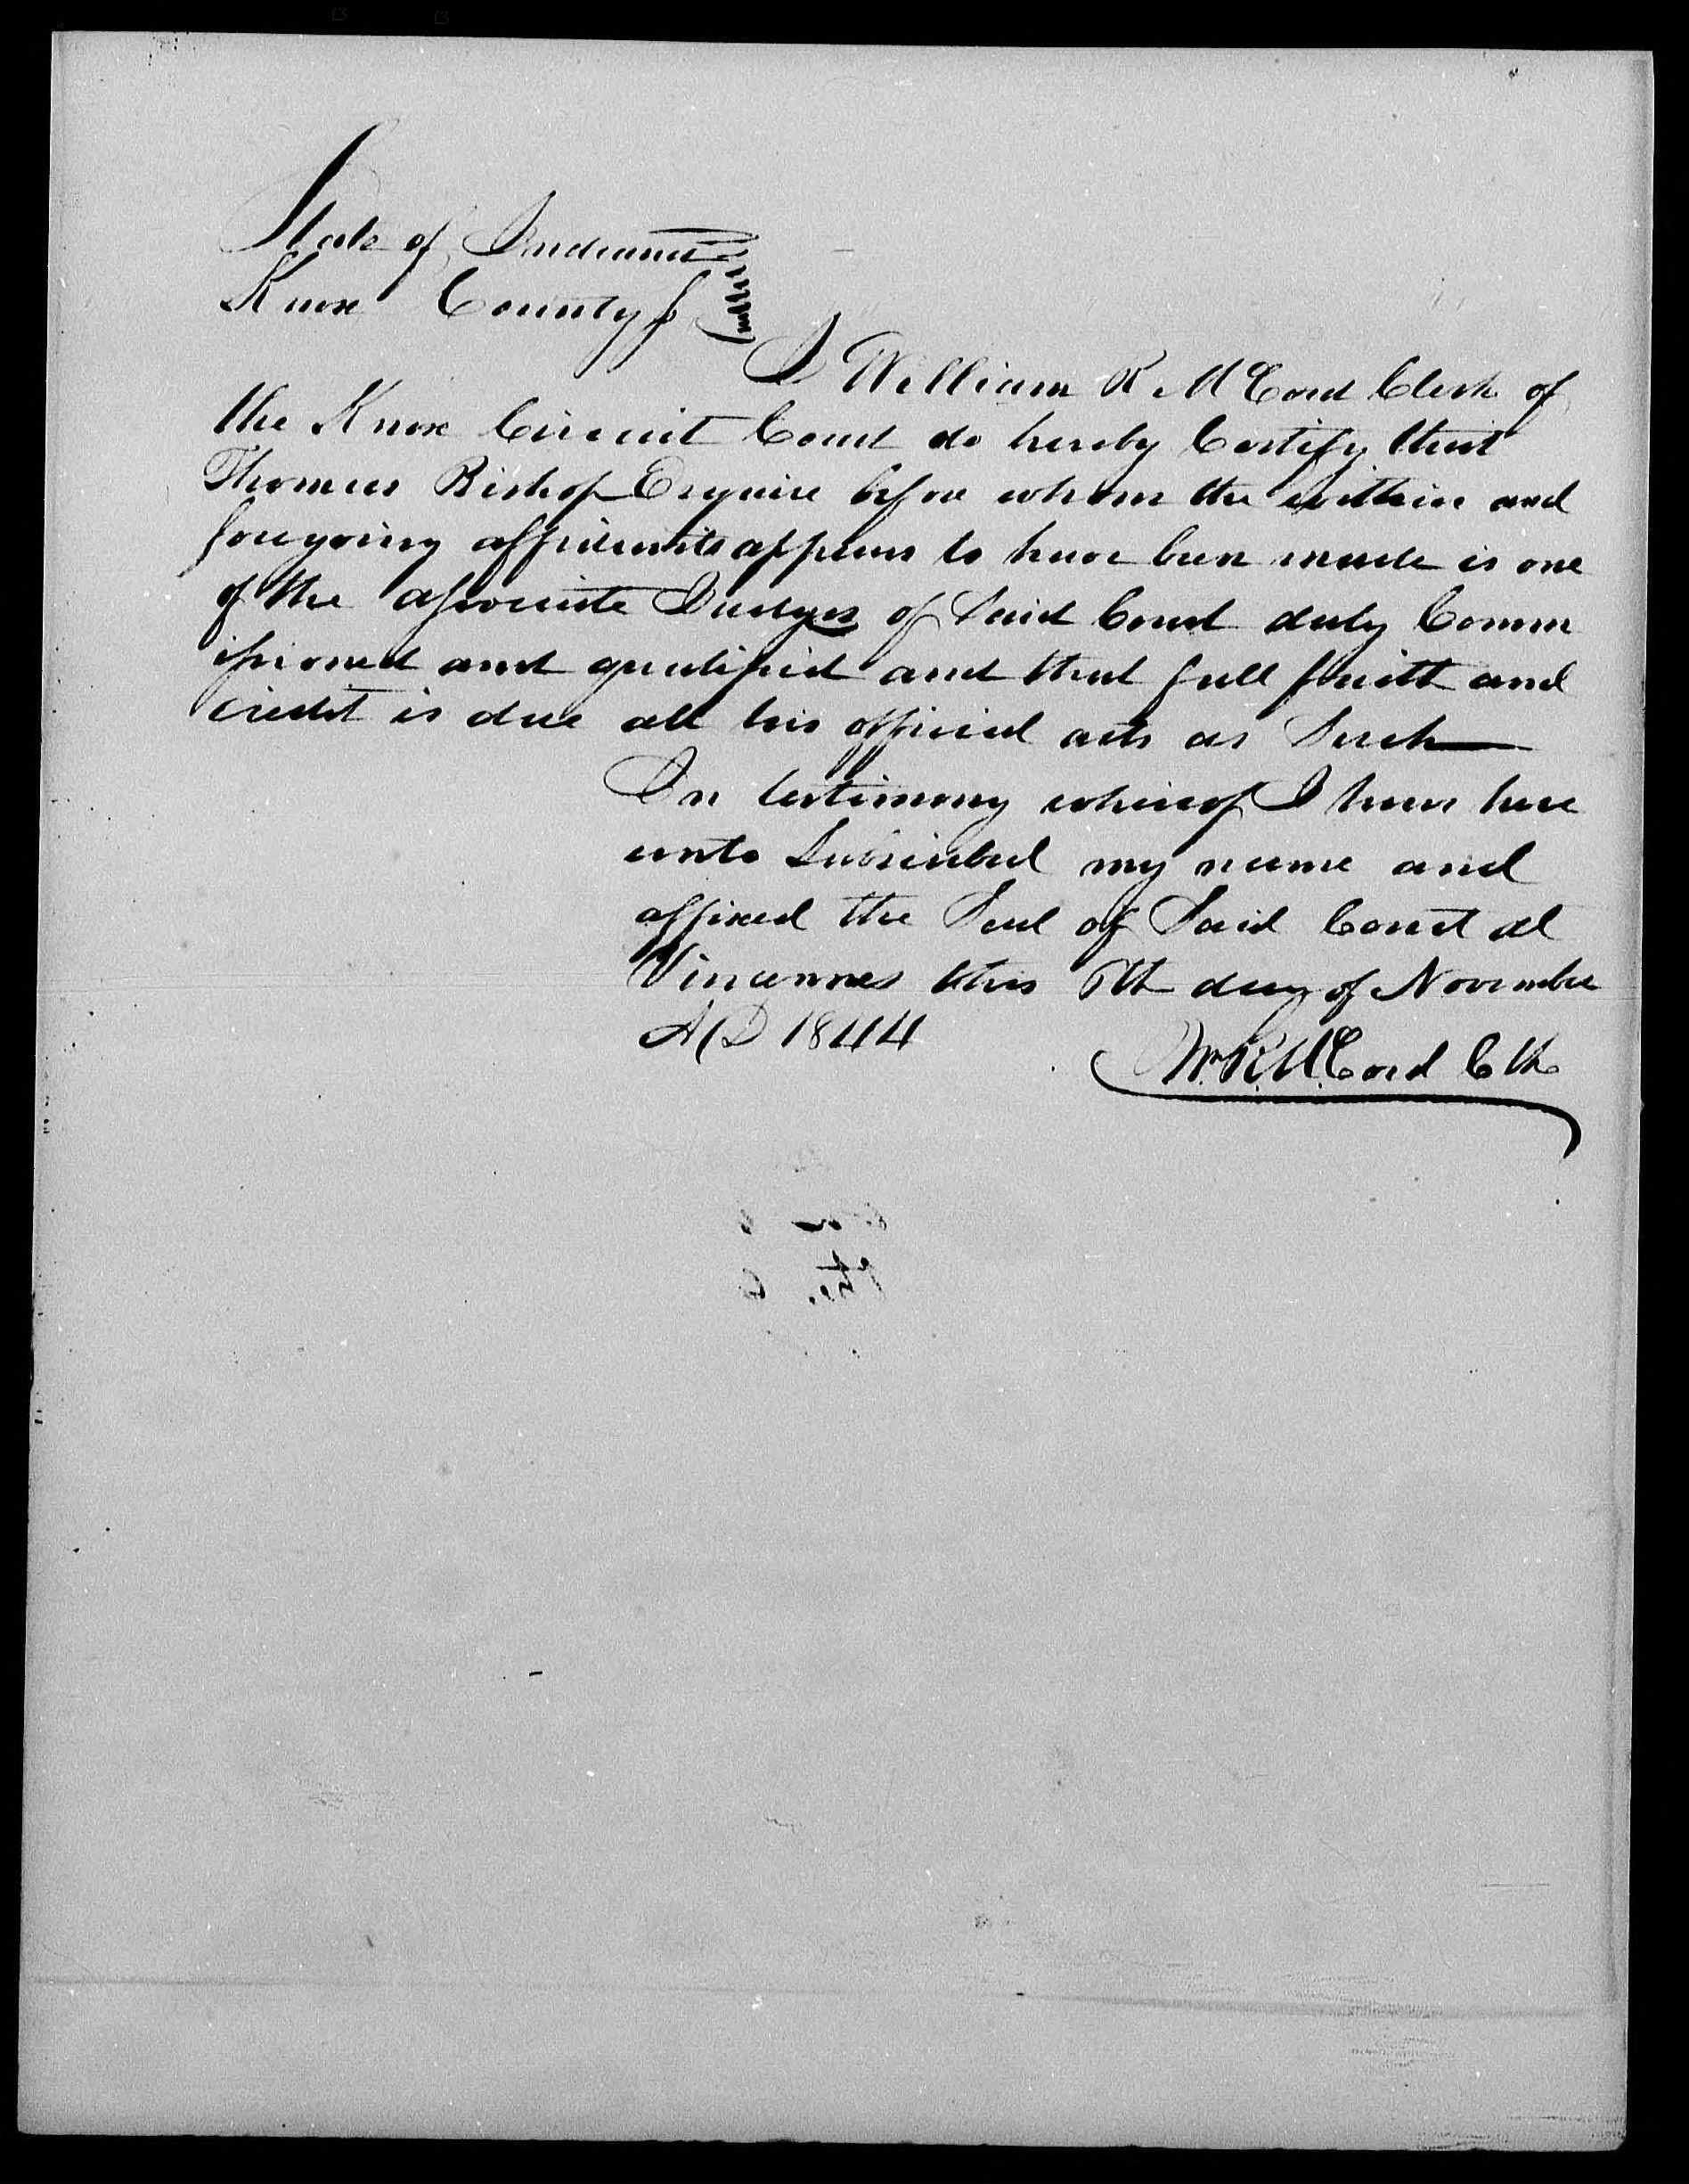 State of Indiana
Knox County
I William R McCord Clerk of
the Knox Circuit Court do hereby Certify that
Thomas Bishop Esquire before whom the within and
foregoing affidavits appears to have been made is one
of the associate Judges of Said Court duly Comm
issioned and qualified and that full faith and
credit is due all his official acts as Such
In testimony whereof I have here
unto Subscribed my name and
affixed the Seal of Said Court at
Vincennes this day of November
AD 1844
Wm R. McCord Clk